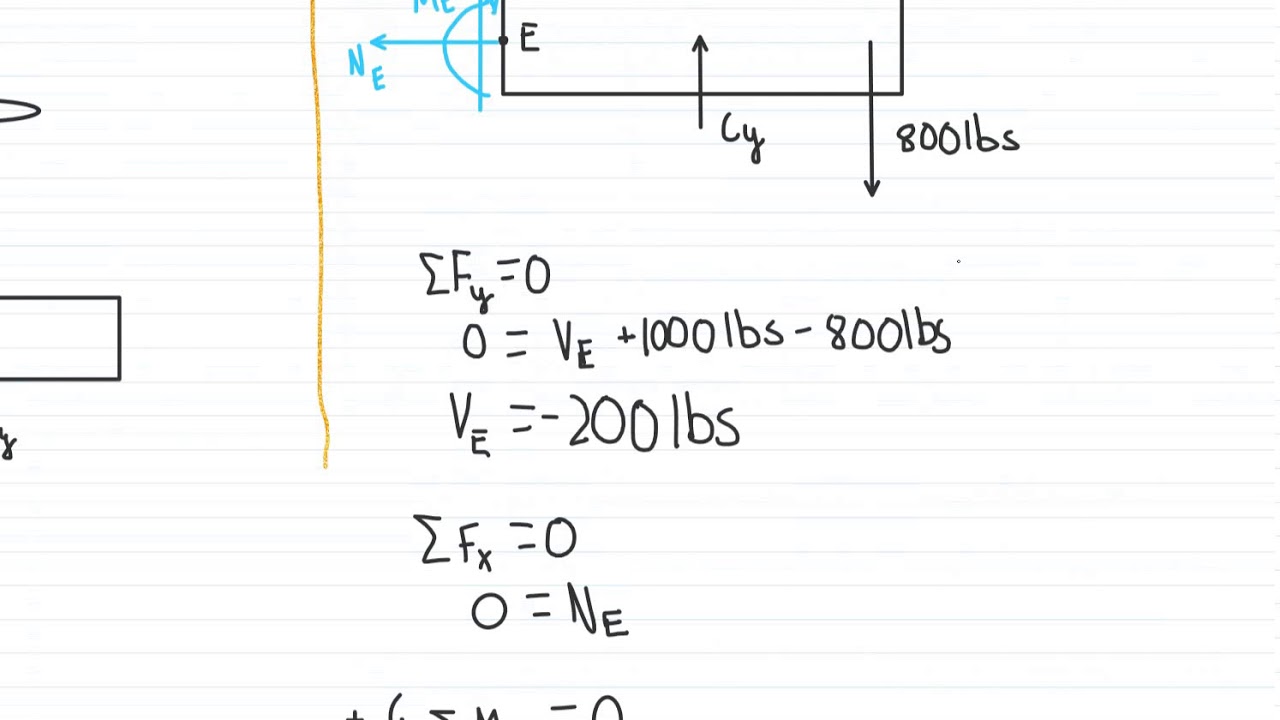 M_E
E
N_E
Cy
800lbs
ΣF_y = 0
0 = V_E + 1000 lbs - 800lbs
V_E = -200 lbs
y
ΣF_x = 0
0 = N_E
= 0